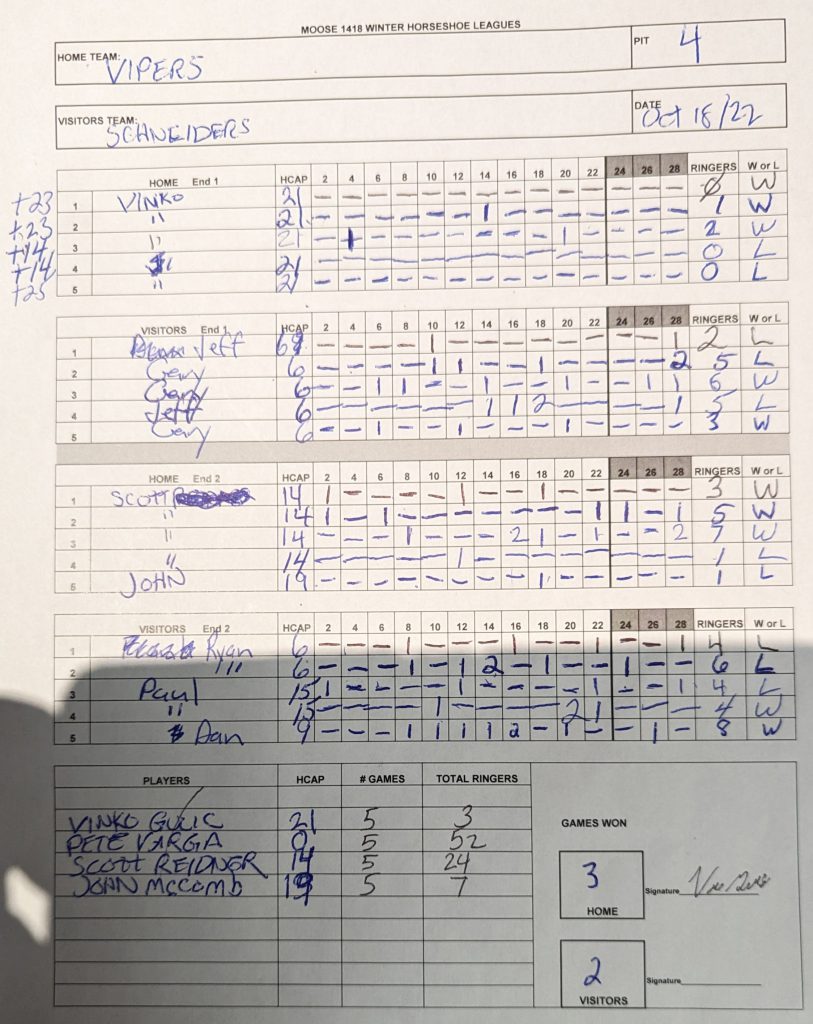 MOOSE 1418 WINTER HORSESHOE LEAGUES
HOME TEAM: VIPERS PIT 4
VISITORS TEAM: SCHNEIDERS DATE Oct 18/22
HOME End 1 HCAP 2 4 6 8 10 12 14 16 18 20 22 24 26 28 RINGERS W or L
+23 1 VINKO 21 – – – – – – – – – – – – – – 0 W
+23 2 " 21 – – – – – – 1 – – – – – – – 1 W
+14 3 " 21 – 1 – – – – – – – 1 – – – – 2 W
+14 4 " 21 – – – – – – – – – – – – – – 0 L
+23 5 " 21 – – – – – – – – – – – – – – 0 L
VISITORS End 1 HCAP 2 4 6 8 10 12 14 16 18 20 22 24 26 28 RINGERS W or L
1 Jeff 6 – – – – 1 – – – – – – – – 1 2 L
2 Gary 6 – – – – 1 1 – – 1 – – – – 2 5 L
3 Gary 6 – – 1 1 – – 1 – – 1 – – 1 1 6 W
4 Jeff 6 – – – – – – 1 1 2 – – – – 1 5 L
5 Gary 6 – – 1 – – 1 – – – 1 – – – – 3 W
HOME End 2 HCAP 2 4 6 8 10 12 14 16 18 20 22 24 26 28 RINGERS W or L
1 SCOTT 14 1 – – – – 1 – – 1 – – – – – 3 W
2 " 14 1 – 1 – – – – – – – 1 1 – 1 5 W
3 " 14 – – – 1 – – – 2 1 – 1 – – 2 7 W
4 " 14 – – – – – 1 – – – – – – – – 1 L
5 JOHN 19 – – – – – – – – 1 – – – – – 1 L
VISITORS End 2 HCAP 2 4 6 8 10 12 14 16 18 20 22 24 26 28 RINGERS W or L
1 Ryan 6 – – – 1 – – – 1 – – 1 – – 1 4 L
2 " 6 – – – 1 – 1 2 – 1 – – 1 – – 6 L
3 Paul 15 1 – – – – 1 – – – – 1 – – 1 4 L
4 " 15 – – – – 1 – – – – 2 1 – – – 4 W
5 Dan 9 – – – 1 1 1 1 2 – 1 – – 1 – 8 W
PLAYERS HCAP # GAMES TOTAL RINGERS
VINKO GULIC 21 5 3
PETE VARGA 0 5 52
SCOTT REIDNER 14 5 24
JOHN McComb 19 5 7
GAMES WON
3
HOME
Signature
2
VISITORS
Signature